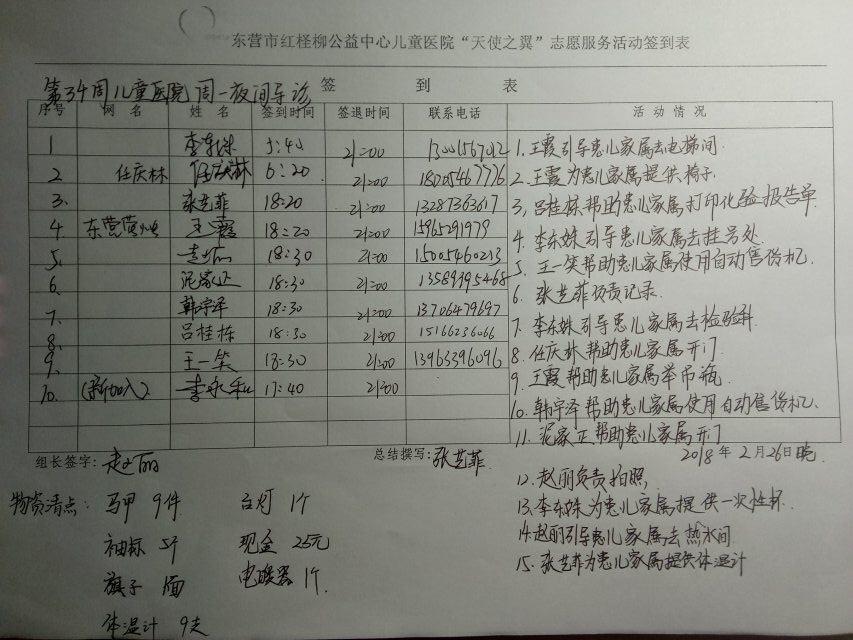 东营市红柽柳公益中心儿童医院“天使之翼”志愿服务活动签到表
签 到 表
第34周儿童医院周一夜间导诊
序号 网 名 姓 名 签到时间 签退时间 联系电话 活动情况
1 李东姝 5:40 21:00
2 任庆林 任庆林 6:20 21:00 18005467776
3. 张艺菲 18:20 21:00 13287363617
4. 东营 王霞 18:20 21:00 15965291979
5. 18:30 21:00 15005460213
6. 泥家正 18:30 21:00 13589995468
7. 韩宇泽 18:30 21:00 13706479697
8. 吕桂栋 18:30 21:00 15166236066
9. 王一笑 18:30 21:00 13963396096
10. (新加入) 李永和 17:40 21:00
1. 王霞引导患儿家属去电梯间
2. 王霞为患儿家属提供椅子
3, 吕桂栋帮助患儿家属打印化验报告单
4. 李东姝引导患儿家属去挂号处
5. 王一笑帮助患儿家属使用自动售货机
6. 张艺菲负责记录.
7. 李东姝引导患儿家属去检验科
8. 任庆林帮助患儿家属开门
9. 王霞帮助患儿家属举吊瓶
10. 韩宇泽帮助患儿家属使用自动售货机.
11. 泥家正帮助患儿家属开门
组长签字: 赵丽 总结撰写: 张艺菲 2018年2月26日晚
12. 赵丽负责拍照,
13. 李东姝为患儿家属提供一次性杯
14. 赵丽引导患儿家属去热水间
15. 张艺菲为患儿家属提供体温计
物资清点: 马甲 9件 台灯 1个
袖标 5个 现金 25元
旗子 1面 电暖器 1个.
体温计 9支